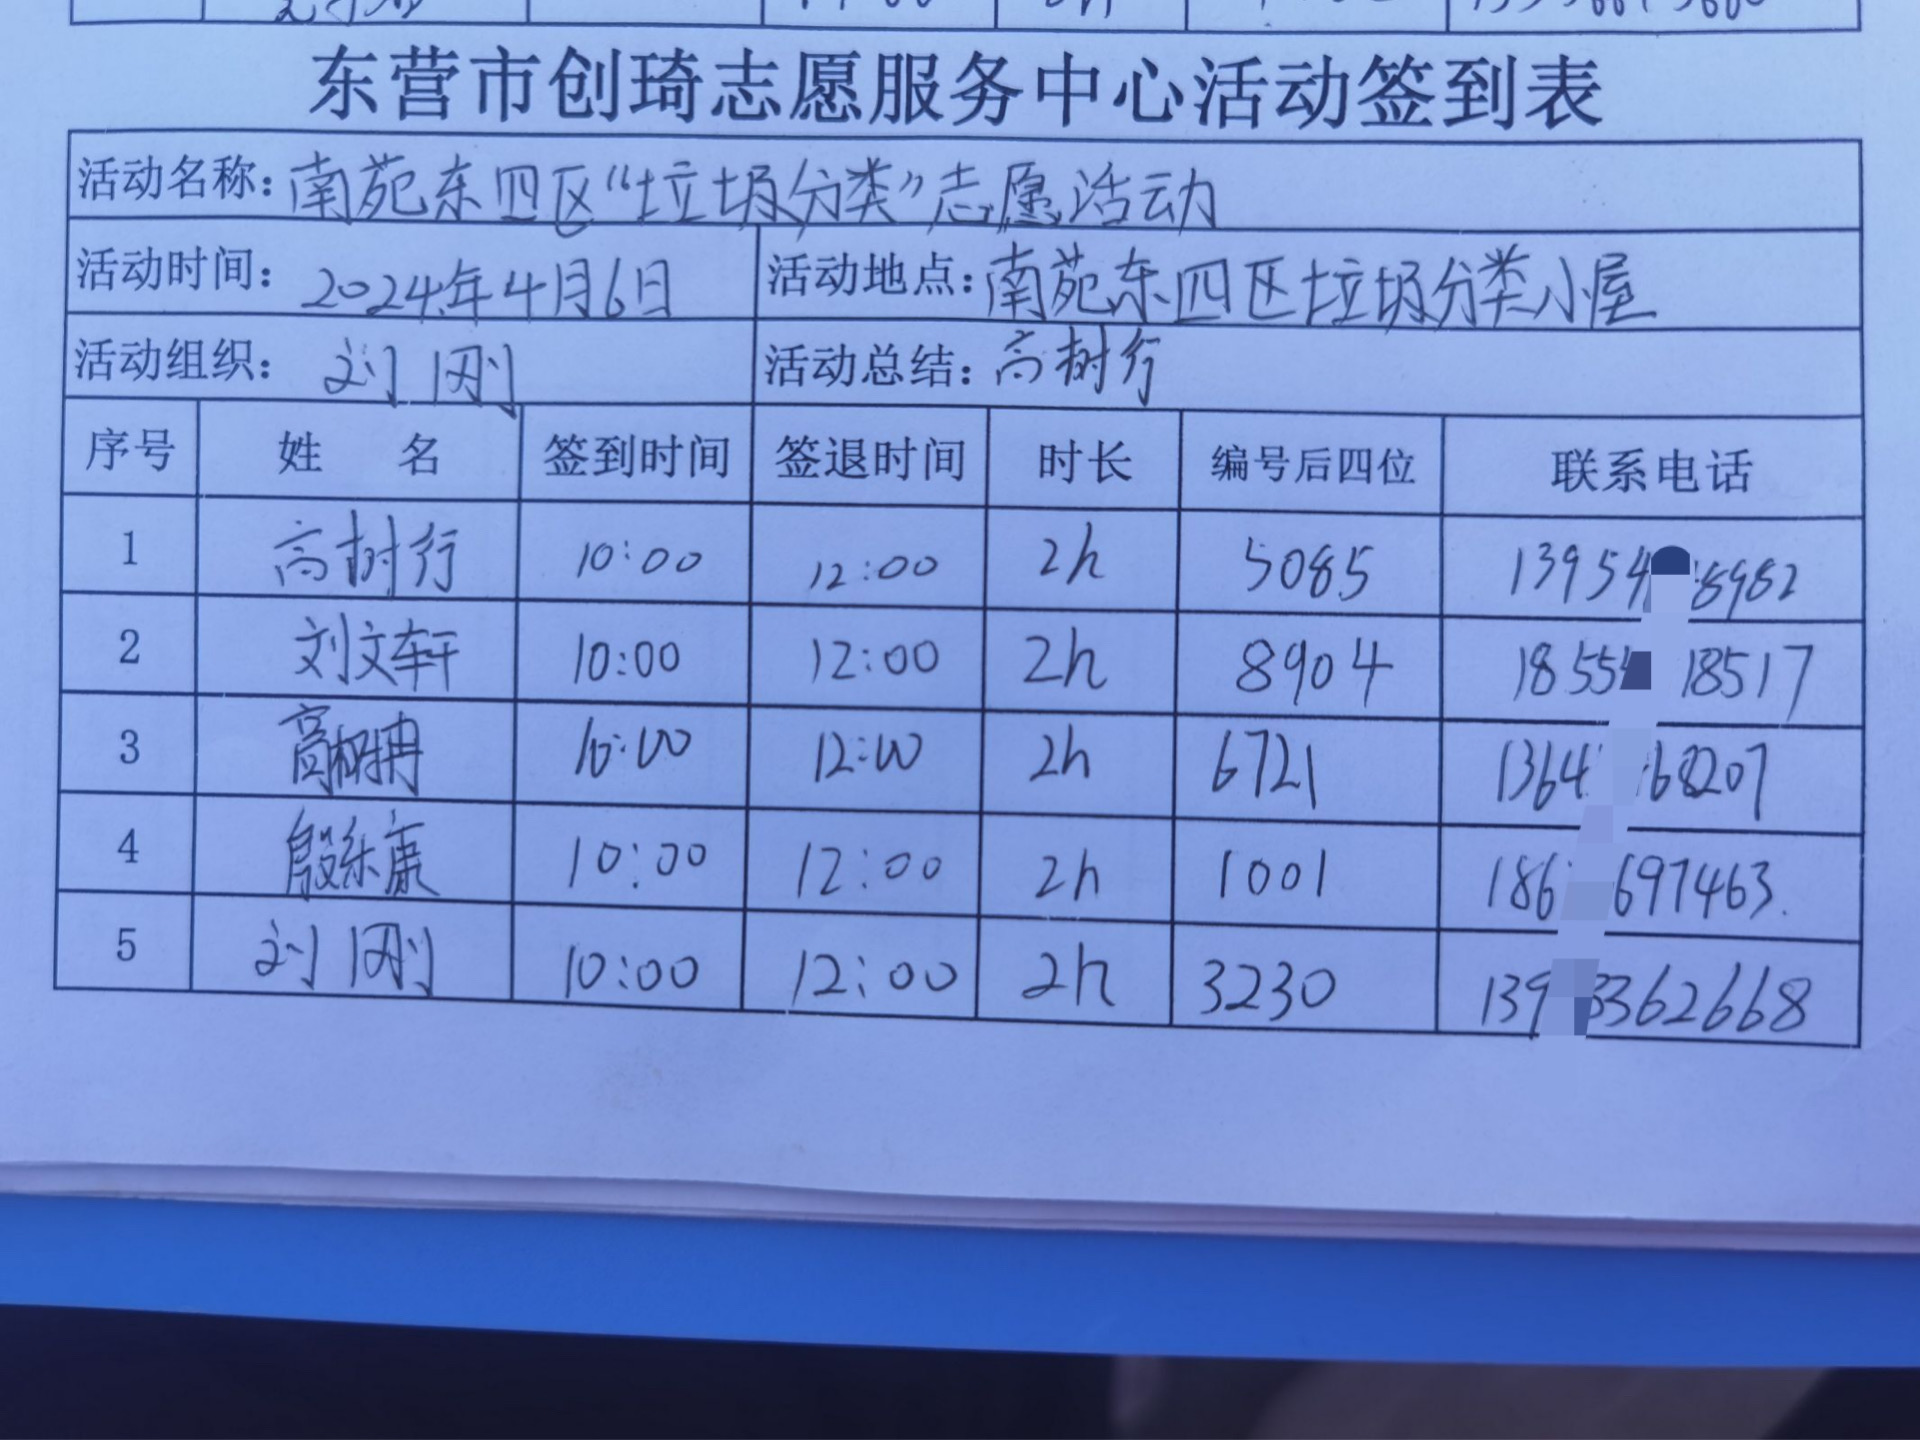 东营市创琦志愿服务中心活动签到表
活动名称：南苑东四区“垃圾分类”志愿活动
活动时间：2024年4月6日 活动地点：南苑东四区垃圾分类小屋
活动组织：刘刚 活动总结：高树行
序号 姓名 签到时间 签退时间 时长 编号后四位 联系电话
1 高树行 10:00 12:00 2h 5085 13954 8982
2 刘文轩 10:00 12:00 2h 8904 18554 18517
3 高树冉 10:00 12:00 2h 6721 1364 68207
4 殷东康 10:00 12:00 2h 1001 186 697463
5 刘刚 10:00 12:00 2h 3230 139 3362668